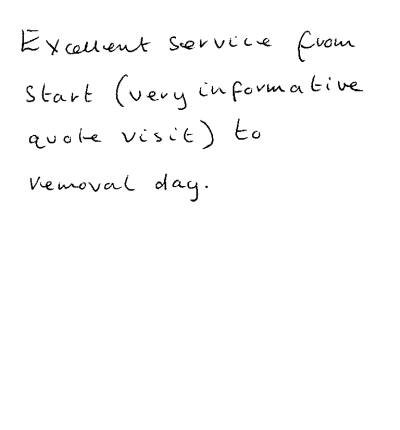 Excellent service from
start (very informative
quote visit) to
removal day.